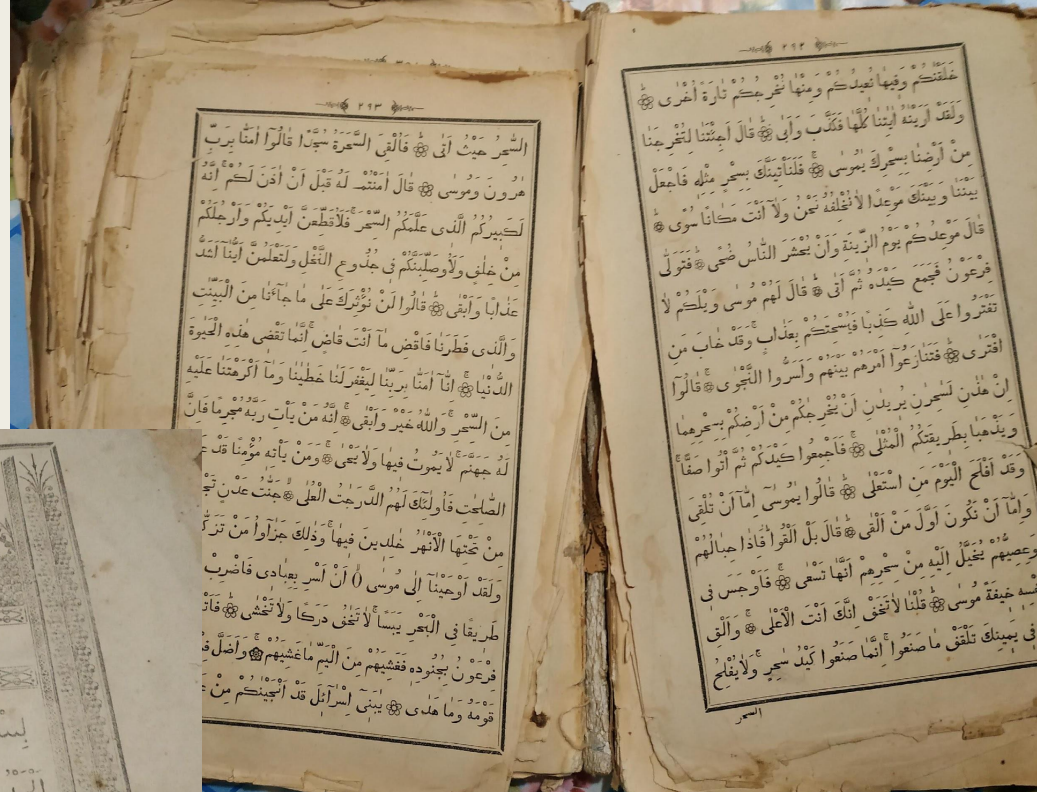 ٢٩٢
خَلَقْنٰكُمْ وَفِيهَا نُعِيدُكُمْ وَمِنْهَا نُخْرِجُكُمْ تَارَةً اُخْرٰى
وَلَقَدْ اَرَيْنٰهُ اٰيٰتِنَا كُلَّهَا فَكَذَّبَ وَاَبٰى قَالَ اَجِئْتَنَا لِتُخْرِجَنَا
مِنْ اَرْضِنَا بِسِحْرِكَ يٰمُوسٰى فَلَنَأْتِيَنَّكَ بِسِحْرٍ مِثْلِهِ فَاجْعَلْ
بَيْنَنَا وَبَيْنَكَ مَوْعِدًا لَا نُخْلِفُهُ نَحْنُ وَلَا اَنْتَ مَكَانًا سُوًى
قَالَ مَوْعِدُكُمْ يَوْمُ الزِّينَةِ وَاَنْ يُحْشَرَ النَّاسُ ضُحًى فَتَوَلّٰى
فِرْعَوْنُ فَجَمَعَ كَيْدَهُ ثُمَّ اَتٰى قَالَ لَهُمْ مُوسٰى وَيْلَكُمْ لَا
تَفْتَرُوا عَلَى اللّٰهِ كَذِبًا فَيُسْحِتَكُمْ بِعَذَابٍ وَقَدْ خَابَ مَنِ
افْتَرٰى فَتَنَازَعُوا اَمْرَهُمْ بَيْنَهُمْ وَاَسَرُّوا النَّجْوٰى قَالُوا
اِنْ هٰذٰنِ لَسٰحِرٰنِ يُرِيدٰنِ اَنْ يُخْرِجَاكُمْ مِنْ اَرْضِكُمْ بِسِحْرِهِمَا
وَيَذْهَبَا بِطَرِيقَتِكُمُ الْمُثْلٰى فَاَجْمِعُوا كَيْدَكُمْ ثُمَّ ائْتُوا صَفًّا
وَقَدْ اَفْلَحَ الْيَوْمَ مَنِ اسْتَعْلٰى قَالُوا يٰمُوسٰى اِمَّا اَنْ تُلْقِىَ
وَاِمَّا اَنْ نَكُونَ اَوَّلَ مَنْ اَلْقٰى قَالَ بَلْ اَلْقُوا فَاِذَا حِبَالُهُمْ
وَعِصِيُّهُمْ يُخَيَّلُ اِلَيْهِ مِنْ سِحْرِهِمْ اَنَّهَا تَسْعٰى فَاَوْجَسَ فِى
نَفْسِهِ خِيفَةً مُوسٰى قُلْنَا لَا تَخَفْ اِنَّكَ اَنْتَ الْاَعْلٰى وَاَلْقِ
فِى يَمِينِكَ تَلْقَفْ مَا صَنَعُوا اِنَّمَا صَنَعُوا كَيْدُ سٰحِرٍ وَلَا يُفْلِحُ
السّٰحر
٢٩٣
السَّاحِرُ حَيْثُ اَتٰى فَاُلْقِىَ السَّحَرَةُ سُجَّدًا قَالُوا اٰمَنَّا بِرَبِّ
هٰرُونَ وَمُوسٰى قَالَ اٰمَنْتُمْ لَهُ قَبْلَ اَنْ اٰذَنَ لَكُمْ اِنَّهُ
لَكَبِيرُكُمُ الَّذِى عَلَّمَكُمُ السِّحْرَ فَلَاُقَطِّعَنَّ اَيْدِيَكُمْ وَاَرْجُلَكُمْ
مِنْ خِلٰفٍ وَلَاُوصَلِّبَنَّكُمْ فِى جُذُوعِ النَّخْلِ وَلَتَعْلَمُنَّ اَيُّنَا اَشَدُّ
عَذَابًا وَاَبْقٰى قَالُوا لَنْ نُؤْثِرَكَ عَلٰى مَا جَاءَنَا مِنَ الْبَيِّنٰتِ
وَالَّذِى فَطَرَنَا فَاقْضِ مَا اَنْتَ قَاضٍ اِنَّمَا تَقْضِى هٰذِهِ الْحَيٰوةَ
الدُّنْيَا اِنَّا اٰمَنَّا بِرَبِّنَا لِيَغْفِرَ لَنَا خَطٰيٰنَا وَمَا اَكْرَهْتَنَا عَلَيْهِ
مِنَ السِّحْرِ وَاللّٰهُ خَيْرٌ وَاَبْقٰى اِنَّهُ مَنْ يَأْتِ رَبَّهُ مُجْرِمًا فَاِنَّ
لَهُ جَهَنَّمَ لَا يَمُوتُ فِيهَا وَلَا يَحْيٰى وَمَنْ يَأْتِهِ مُؤْمِنًا قَدْ
الصّٰلِحٰتِ فَاُولٰئِكَ لَهُمُ الدَّرَجٰتُ الْعُلٰى جَنّٰتُ عَدْنٍ
مِنْ تَحْتِهَا الْاَنْهٰرُ خٰلِدِينَ فِيهَا وَذٰلِكَ جَزٰٓاؤُا مَنْ
وَلَقَدْ اَوْحَيْنَا اِلٰى مُوسٰى اَنْ اَسْرِ بِعِبَادِى فَاضْرِبْ
طَرِيقًا فِى الْبَحْرِ يَبَسًا لَا تَخٰفُ دَرَكًا وَلَا تَخْشٰى
فِرْعَوْنُ بِجُنُودِهِ فَغَشِيَهُمْ مِنَ الْيَمِّ مَا غَشِيَهُمْ وَاَضَلَّ
قَوْمَهُ وَمَا هَدٰى يٰبَنِى اِسْرَاءِيلَ قَدْ اَنْجَيْنٰكُمْ مِنْ